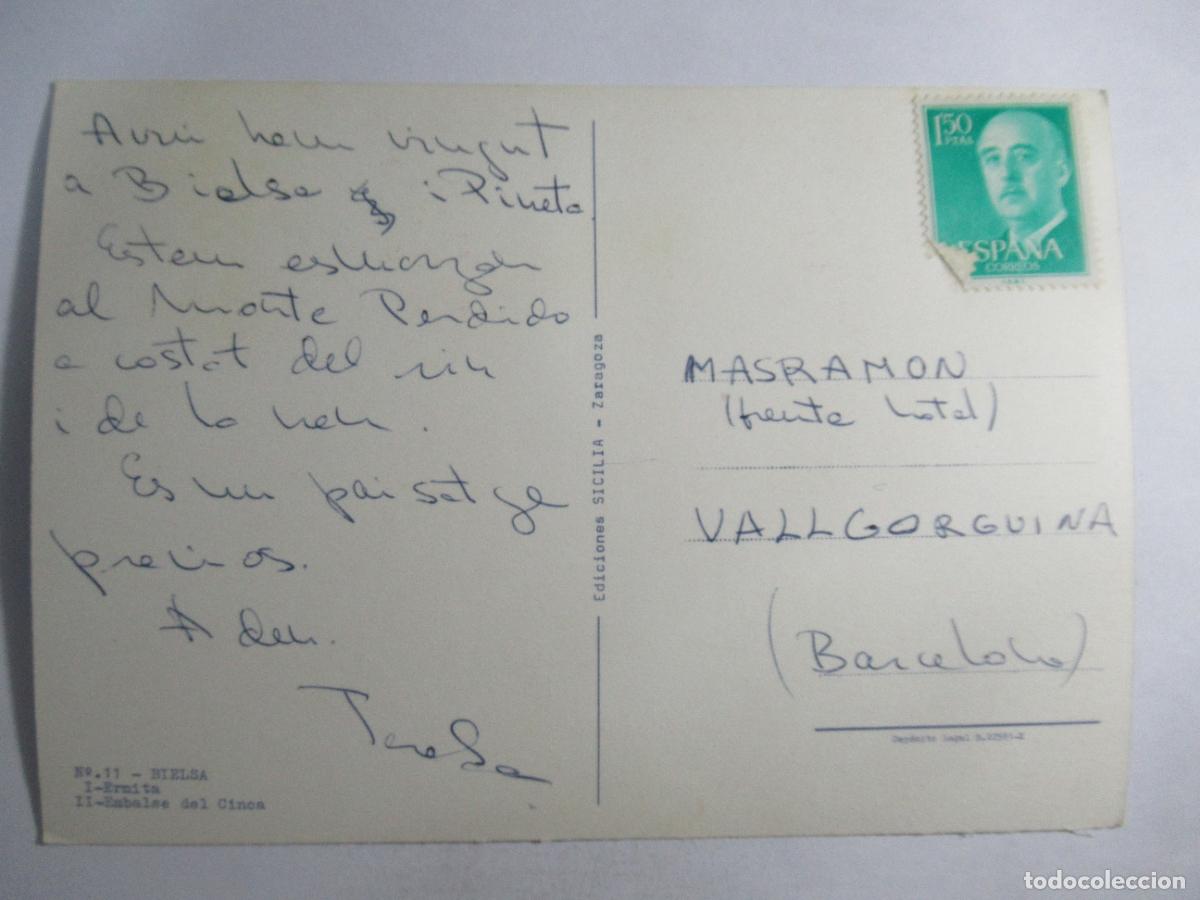 Avui hem vingut
a Bielsa i Pineta
Estem esmorzan
al Monte Perdido
a costat del riu
i de la neu.
Es un paisatge
precios.
Adeu.
Teresa
Nº.11 - BIELSA
I-Ermita
II-Embalse del Cinca
Ediciones SICILIA - Zaragoza
1'50
PTAS
ESPAÑA
CORREOS
MASRAMON
(frente hotel)
VALLGORGUINA
(Barcelona)
Depósito Legal
todocoleccion